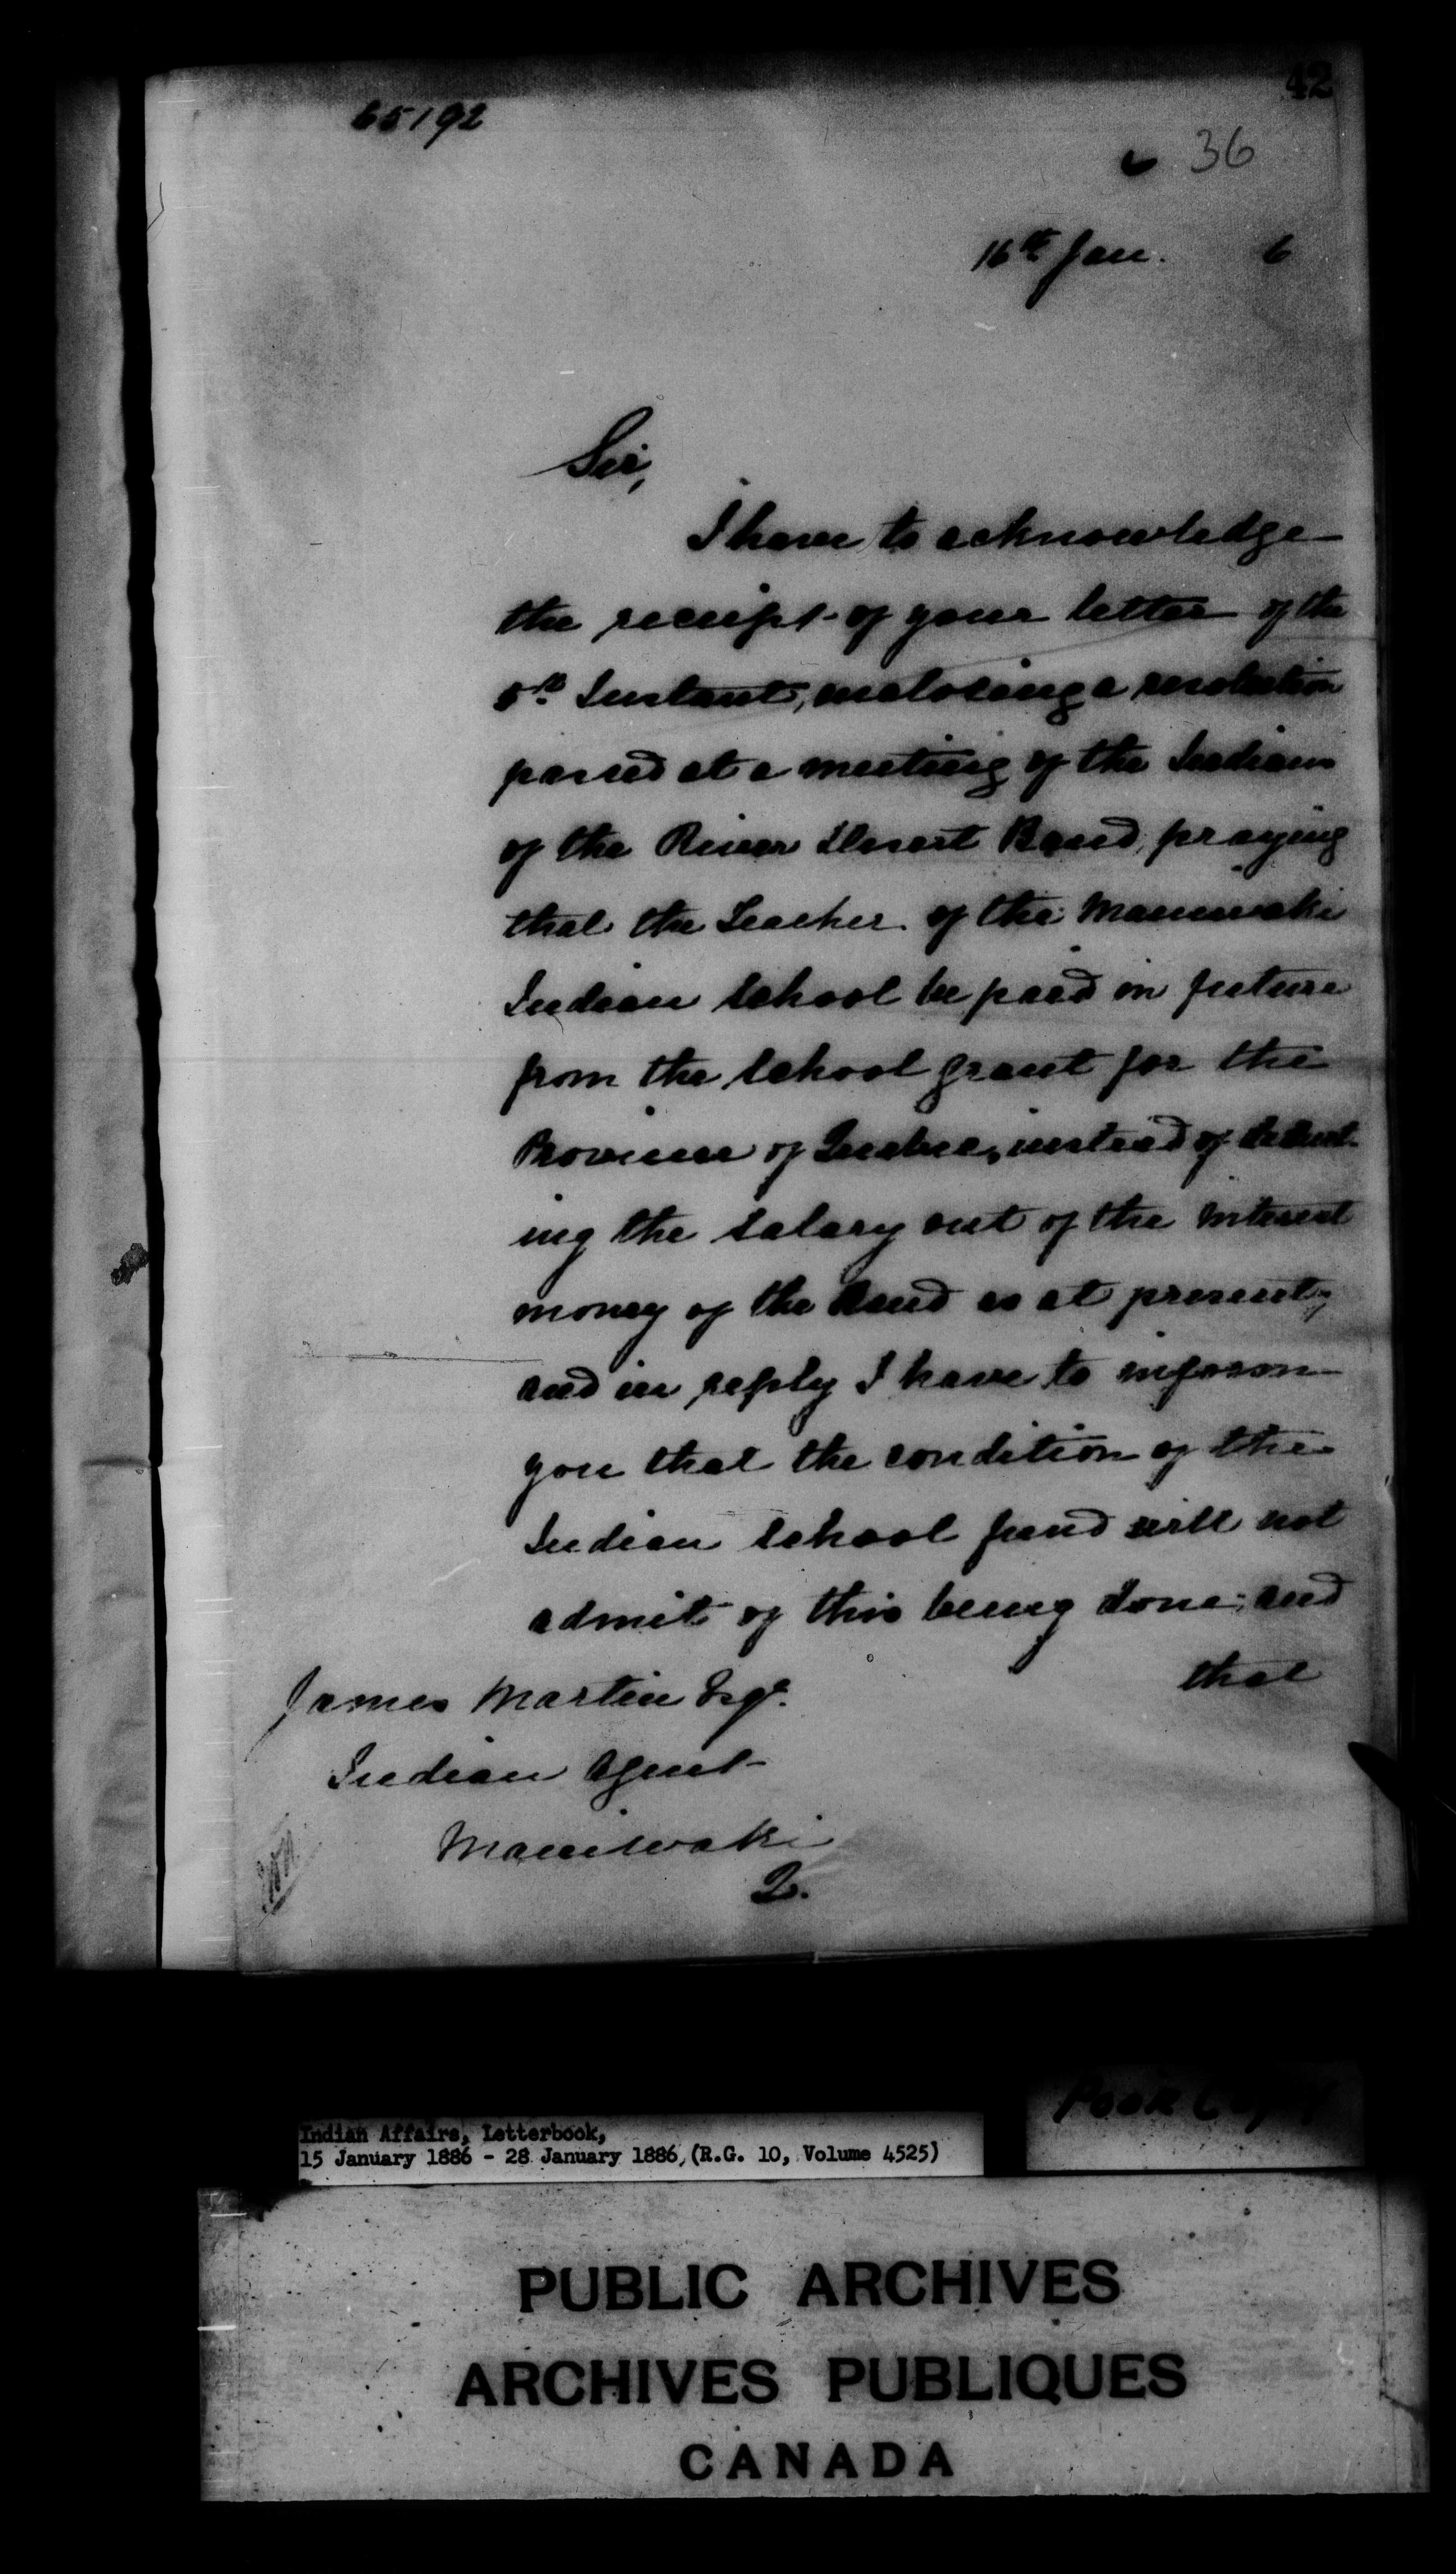 42
65192
36
16th Jan. 6
Sir,
I have to acknowledge
the receipt of your letter of the
5th Instant, inclosing a resolution
passed at a meeting of the Indians
of the River Desert Band, praying
that the Teacher of the Maniwaki
Indian School be paid in future
from the School Grant for the
Province of Quebec, instead of
ing the salary out of the interest
money of the Band as at present;
and in reply I have to inform
you that the condition of the
Indian School fund will not
admit of this being done; and
that
James Martin Esqr.
Indian Agent
Maniwaki
Q.
Poor Copy
Indian Affairs, Letterbook,
15 January 1886 - 28 January 1886, (R.G. 10, Volume 4525)
PUBLIC ARCHIVES
ARCHIVES PUBLIQUES
CANADA